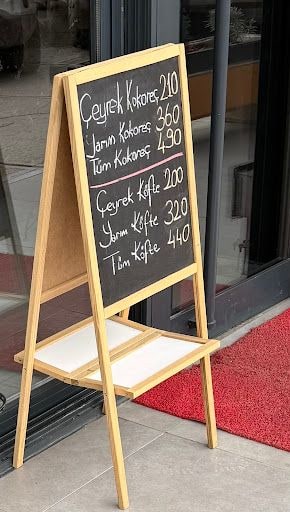 Çeyrek Kokoreç 210
Yarım Kokoreç 360
Tüm Kokoreç 490
Çeyrek Köfte 200
Yarım Köfte 320
Tüm Köfte 440